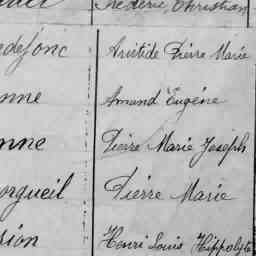 Frédéric, Christian
defonc Aristide Pierre Marie
nne Amand Eugène
nne Pierre Marie Joseph
orgueil Pierre Marie
sion Henri Louis Hippolyte